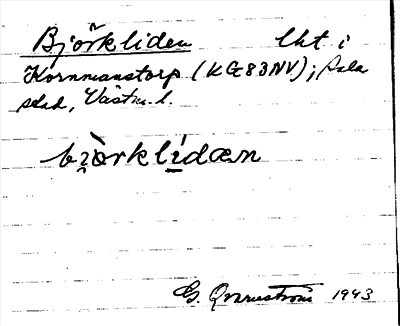 Björkliden lht i
Kornmanstorp (KG83NV); Sala
stad, Västm. l.
bi̯òrklìdæn
G. Qvarnström 1943